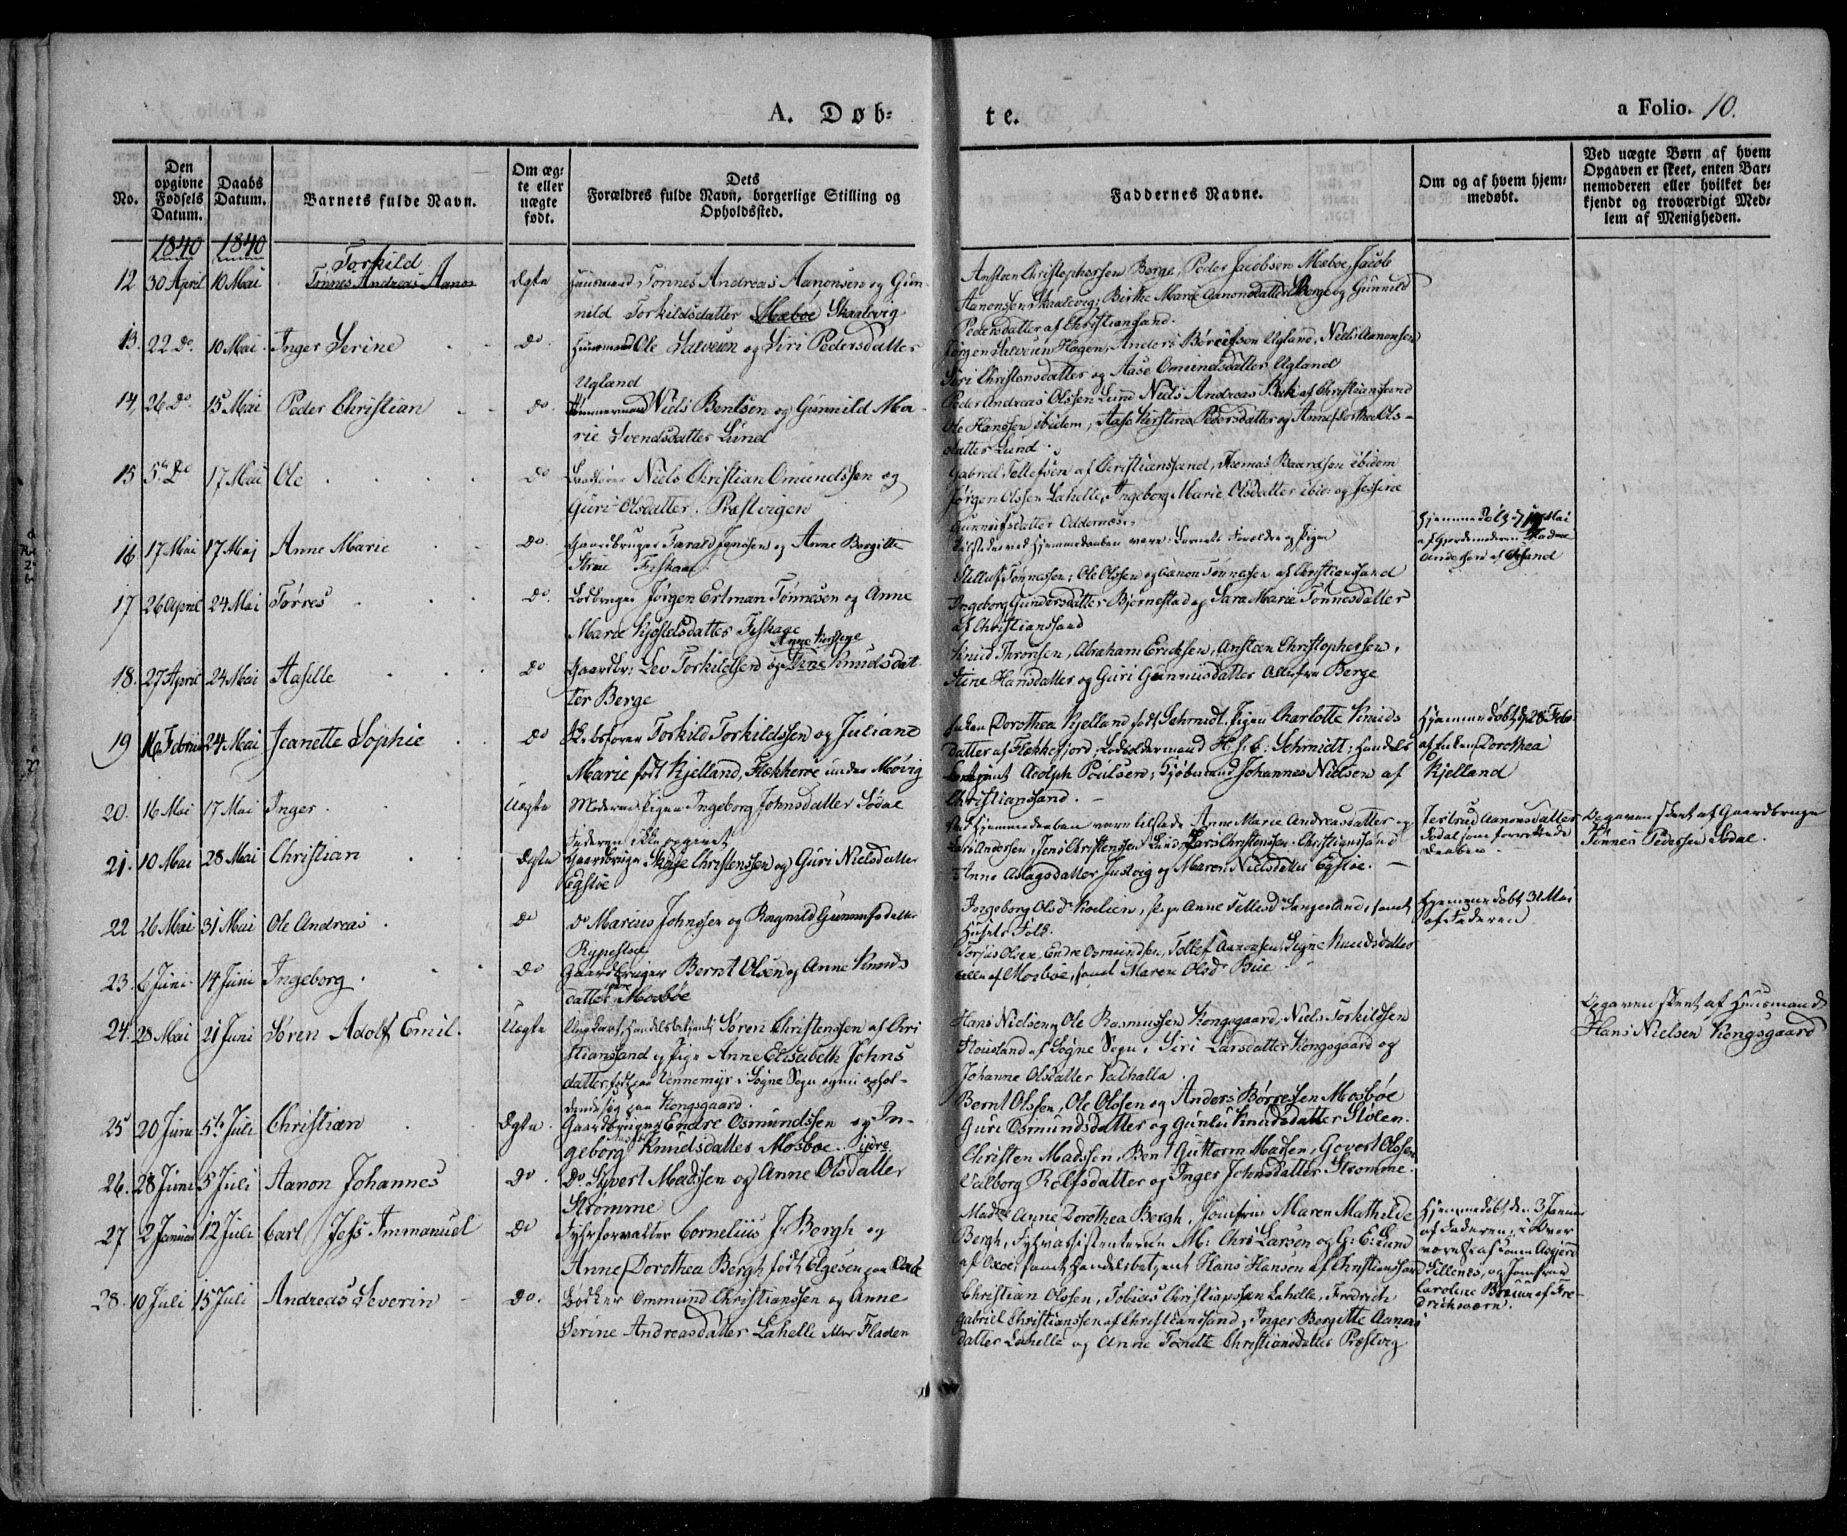 A. Døb-
te.
a Folio. 10.
No.
Den opgivne Fødsels Datum.
Daabs Datum.
Barnets fulde Navn.
Om ægte eller uægte født.
Dets Forældres fulde Navn, borgerlige Stilling og Opholdssted.
Faddernes Navne.
Om og af hvem hjemmedøbt.
Ved uægte Børn af hvem Opgaven er skeet, enten Barnemoderen eller hvilket bekjendt og troværdigt Medlem af Menigheden.
1840 1840
Torkild
12 30 April 10 Mai Tønnes Andreas Aanon Ægte Huusmand Tønnes Andreas Aanonsen og Gun-
nild Torkildsdatter Mæboe Skaalevig
Ansteen Christophersen Berge, Peder Jacobsen Mæboe, Jacob
Aanonsen Skaalevig, Birthe Marie Aanonsdatter Berge og Gunnild
Pedersdatter af Christiansand.
13. 22 Do. 10 Mai. Inger Serine Do. Huusmand Ole Salvesen og Siri Pedersdatter
Ugland
Jørgen Salvesen Hagen, Anders Børresen Ugland, Niels Aanonsen
Siri Christensdatter og Aase Omundsdatter Ugland
14, 26 Do. 15 Mai Peder Christian Do. Tømmermand Niels Bentsen og Gunnild Ma-
rie Svendsdatter Lund
Peder Andreas Olssen Lund Niels Andreas Bæk af Christiansand
Ole Hanssen ibidem, Aase Kirstine Pedersdatter og Anne Dorthea Ols-
datter Lund.
15 5te Do 17 Mai Ole Do Niels Christian Omundssen og
Guri Olsdatter. Præstvigen
Gabriel Tellefsen af Christianssand, Thomas Baardsen ibidem
Jørgen Olssen Lahelle, Ingeborg Marie Olsdatter ibid: og
Gunnufsdatter Oddernæs.
16 17 Mai 17 Mai Anne Marie Do. Gaardbruger Jenssen og Anne Birgitte
Fiskaa
ved Hjemmedaaben vare: Barnets Forældre og Pigen
Hjemmedøbt 17 Mai
af Gjordemoderen Madme
Andersen af Chrsand
17 26 April 24 Mai Tørres Do. Lodbruger Jørgen Ertman Tønnesen og Anne
Marie Kjøstelsdatter Fiskaae
Tønnessen; Ole Olssen og Aanon Tønnessen af Christiansand
Ingeborg Gundersdatter Bjørnestad og Sara Marie Tønnesdatter
af Christianssand
Anne Kirstine
18. 27 April 24 Mai Aasille Do Gaardbr: Lev Torkildsen og Stine Knudsdat-
ter Berge
Knud Thronsen, Abraham Ericksen, Ansteen Christophersen,
Stine Hansdatter og Guri Gunnufsdatter Alle fra Berge
19 16 Februar 24 Mai Jeanette Sophie Do Torkild Torkildssen og Juliane
Marie født Kjelland, Flekkerøe under Møvig
Enken Dorothea Kjelland født Schmidt. Pigen Charlotte Knuds
datter af Flekkefjord, H. F. C: Schmidt; Handels
Betjent Adolph Poulsen, Kjøbmand Johannes Nielsen af
Christiansand. –
Hjemmedøbt d. 28 Feb.
af Enken Dorothea
Kjelland
20. 16 Mai 17 Mai Inger. Uægte Moderen Pigen Ingeborg Johnsdatter Sødal
Faderen ikke opgivet
Ved Hjemmedaaben vare tilstede Anne Marie Andreasdatter og
Tertrud Aanonsdatter
Sødal som forrettede
Daaben.
Opgaven skeet af Gaardbruger
Tønnes Pedersen Sødal.
21. 10 Mai 28 Mai Christian Ægte Gaardbruger Christenssen og Guri Nielsdatter
Egsøe
Jens Christenssen Lund, Lars Christenssen Christianssand
Anne Aslagsdatter Justvig og Maren Nielsdatter Egsøe.
22 26 Mai 31 Mai Ole Andreas Do Do Marius Johnssen og Ragnild Gunnufsdatter
Rypestøl
Ingeborg Olsd Koelien, Pige Anne Tellefsd Langeland, samt
Husets Folk.
Hjemmedøbt 31 Mai
af Faderen
23. 6 Juni 14 Juni Ingeborg. Do Gaardbruger Bernt Olsen og Anne Knuds
datter Mosbøe
Torjus Olsen, Endre Osmundsen, Tellef Aanonsen, Signe Knudsdatter
alle af Mosbøe, samt Maren Olsd Bue
24. 28 Mai 21 Juni Søren Adolf Emil. Uægte Ungkarl, Handelsbetjent Søren Christenssen af Chri
stianssand og Pige Anne Elisabeth Johns
datter, født paa Vennemyr i Søgne Sogn og nu ophol-
dende sig paa Kongsgaard.
Hans Nielsen, Ole Rasmussen Kongsgaard, Niels Torkildsen
Flousland af Søgne Sogn, Siri Larsdatter Kongsgaard og
Johanne Olsdatter Valhalla.
Opgaven skeet af Huusmand
Hans Nielsen Kongsgaard
25 20 Juni 5te Juli Christian Ægte. Gaardbruger Endre Osmundssen og In-
geborg Knudsdatter Mosboe. Ydre
Bernt Olssen, Ole Olssen og Anders Børresen Mosbøe
Guri Osmundsdatter og Gunlu Knudsdatter Stølen.
26. 28 Juni 5 Juli Aanon Johannes Do. Do. Syvert Madssen og Anne Olsdatter
Strømme
Christen Madssen, Bent Guttorm Madsen, Govert Olssen
Valborg Rolfsdatter og Inger Johnsdatter Strømme.
27 2 Januar 12 Juli Carl Jess Immanuel Do Fyhrforvalter Cornelius J. Bergh og
Anne Dorothea Bergh født Elgesen paa Oxøe
Madme Anne Dorothea Bergh, Jomfrue Maren Mathilde
Bergh, Fyhrassistenterne M: Chrs Larsen og G: E: Lund
af Oxøe, samt Handelsbetjent Hans Hansen af Christianssand
Hjemmedøbt den 3 Januar
af Faderen, i Over
værelse af Anne Asgjerd
Tellenes, og Jomfrue
Caroline Bruun af Fre-
drichsværn.
28. 10 Juli 15 Juli Andreas Severin Do. Bødker Ommund Christianssen og Anne
Serine Andreasdatter Lahelle Fladen
Christian Olssen, Tobias Christianssen Lahelle, Fredrich
Gabriel Christianssen af Christianssand, Inger Bergitte Aanons
datter Lahelle og Anne Tomette Christiansdatter Præstvig